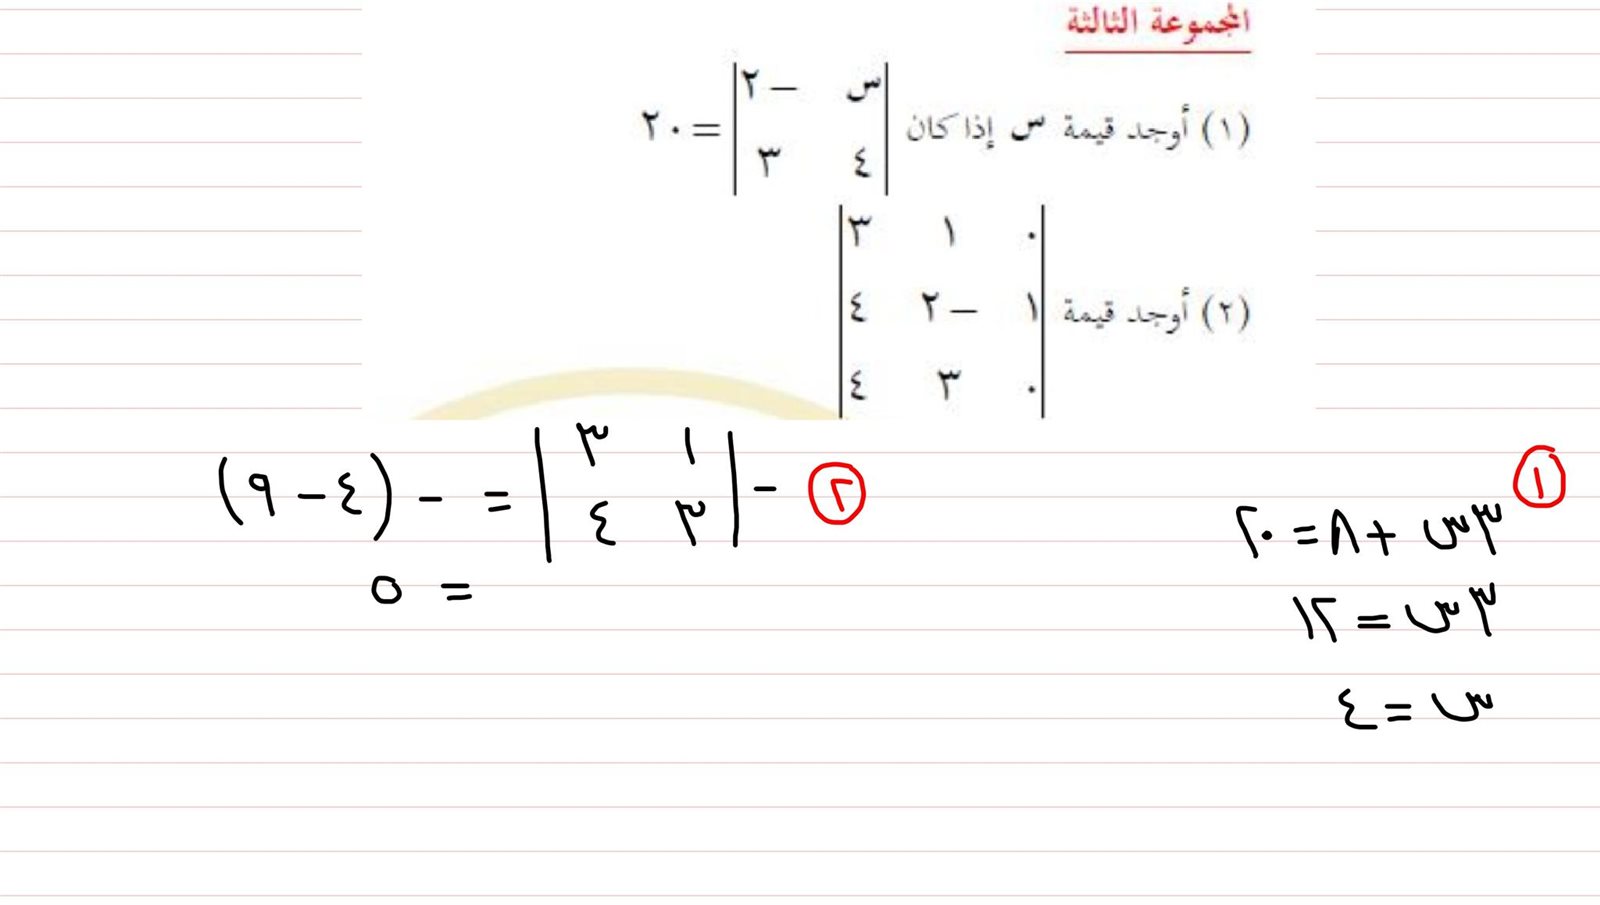 المجموعة الثالثة
(١) أوجد قيمة س إذا كان | س −٢ | = ٢٠
| ٤ ٣ |
| ٠ ١ ٣ |
(٢) أوجد قيمة | ١ −٢ ٤ |
| ٠ ٣ ٤ |
①
٣س + ٨ = ٢٠
٣س = ١٢
س = ٤
② − | ١ ٣ | = − (٤ − ٩)
| ٣ ٤ |
= ٥